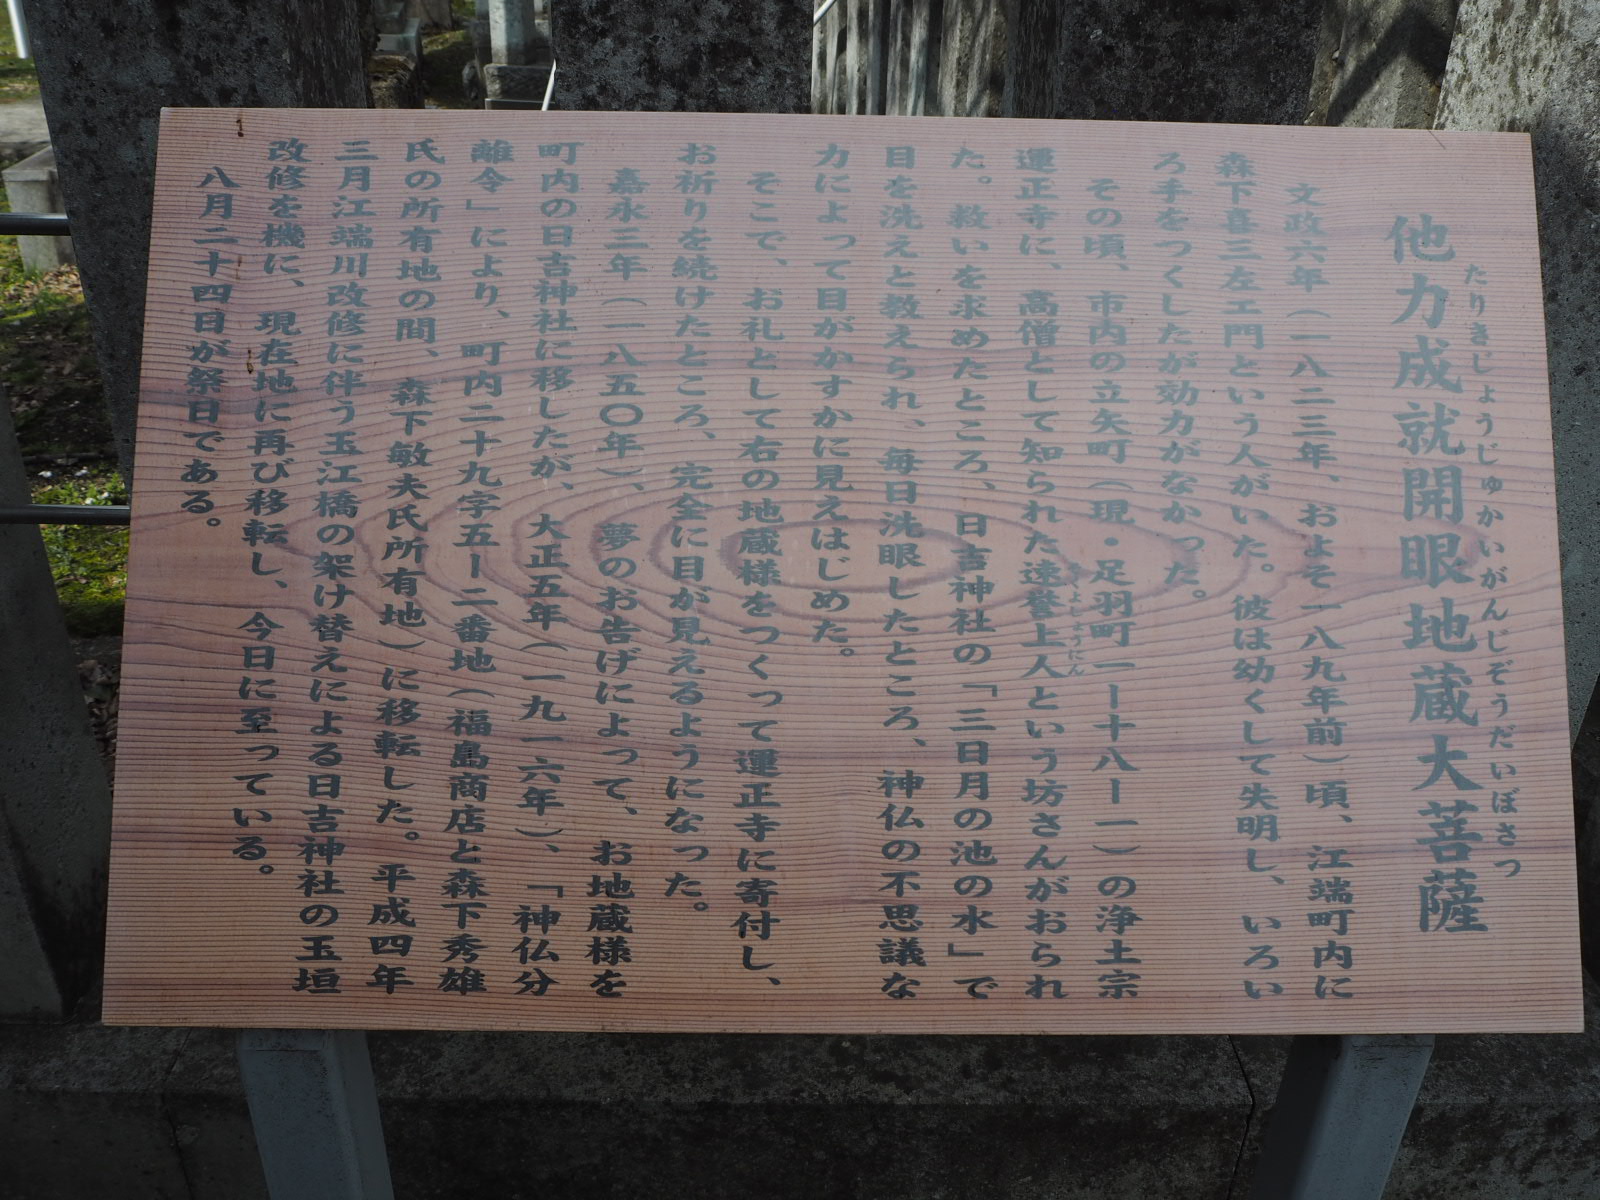 他力成就開眼地蔵大菩薩
たりきじょうじゅかいがんじぞうだいぼさつ
文政六年（一八二三年、およそ一八九年前）頃、江端町内に
森下喜三左エ門という人がいた。彼は幼くして失明し、いろい
ろ手をつくしたが効力がなかった。
その頃、市内の立矢町（現・足羽町一ー十八ー一）の浄土宗
運正寺に、高僧として知られた速誉上人という坊さんがおられ
そくよしょうにん
た。救いを求めたところ、日吉神社の「三日月の池の水」で
目を洗えと教えられ、毎日洗眼したところ、神仏の不思議な
力によって目がかすかに見えはじめた。
そこで、お礼として右の地蔵様をつくって運正寺に寄付し、
お祈りを続けたところ、完全に目が見えるようになった。
嘉永三年（一八五〇年）、夢のお告げによって、お地蔵様を
町内の日吉神社に移したが、大正五年（一九一六年）、「神仏分
離令」により、町内二十九字五ー二番地（福島商店と森下秀雄
氏の所有地の間、森下敏夫氏所有地）に移転した。平成四年
三月江端川改修に伴う玉江橋の架け替えによる日吉神社の玉垣
改修を機に、現在地に再び移転し、今日に至っている。
八月二十四日が祭日である。